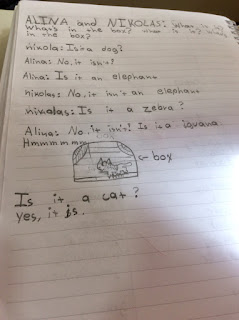 ALINA and NIKOLAS: What is in
What's in the box? what is in? What's
in the box?
nikola: Is it a dog?
Alina: No, it isn't?
Alina: Is it an elephant
nikolas: No, it isn't an elephant
nikolas: Is it a zebra?
Alina: No, it isn't! Is it a iguana
Hmmmmmm
box
Is it a cat?
yes, it is.